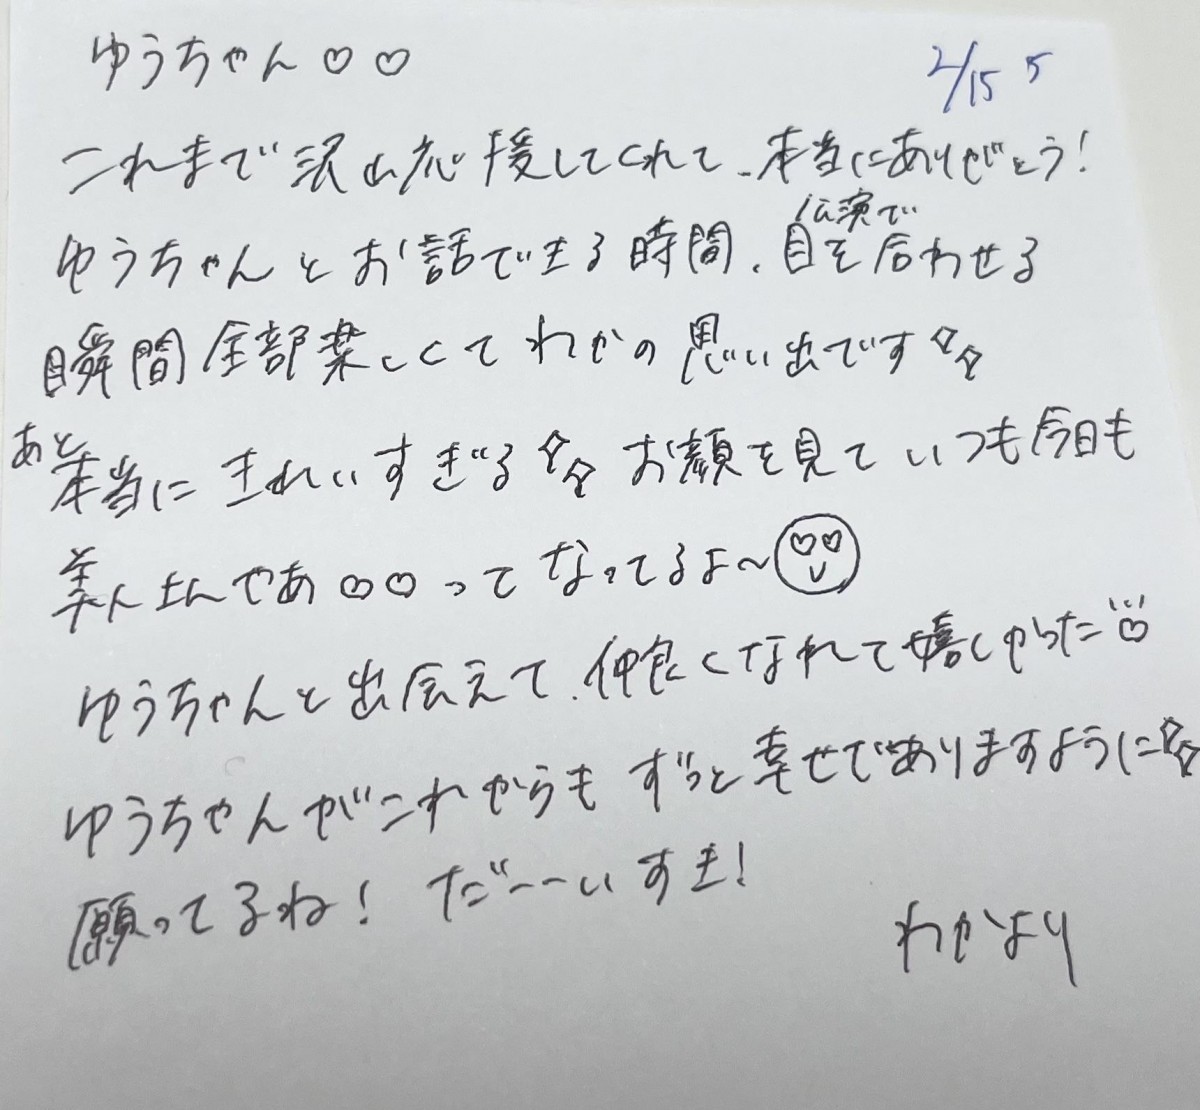 ゆうちゃん♡♡
2/15 5
これまで沢山応援してくれて、本当にありがとう!
ゆうちゃんとお話できる時間、公演で目を合わせる
瞬間全部楽しくてわかの思い出です
あと本当にきれいすぎる お顔を見ていつも今日も
美人さんやあ♡♡ってなってるよ〜
ゆうちゃんと出会えて、仲良くなれて嬉しかった
ゆうちゃんがこれからもずっと幸せでありますように
願ってるね! だーーいすき!
わかより